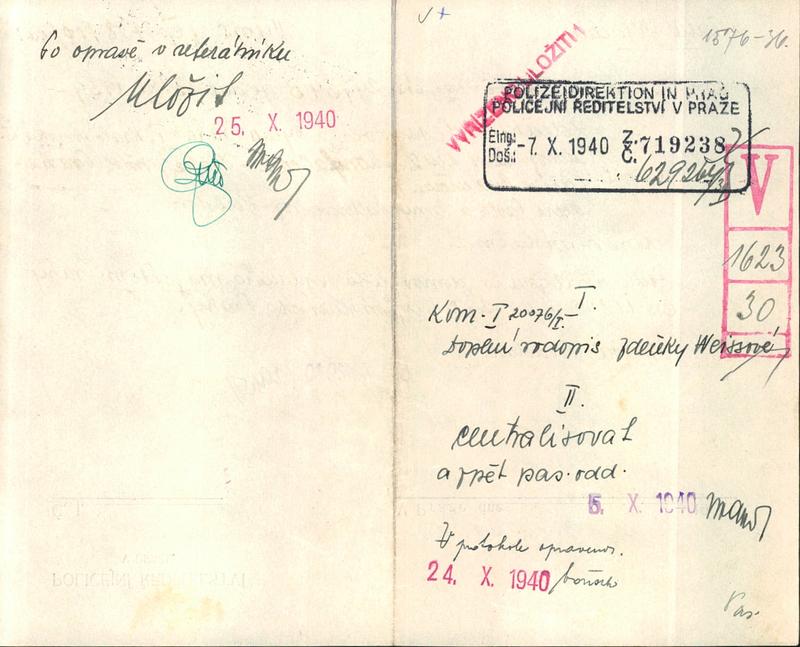 Po opravě v referátníku
Uložit
25. X. 1940
V +
1576-36.
VYŘIZENO ULOŽITI
POLIZEIDIREKTION IN PRAG
POLICEJNÍ ŘEDITELSTVÍ V PRAZE
Eing.: Doš.: -7. X. 1940 Z. Č. 719238
V
1623
30
I.
Kom. I 20076/I.
Doplní rodopis Zdeňky Weissové
II.
centralisovat
a zpět pas. odd.
5. X. 1940
V protokole opraveno.
24. X. 1940
Pas.
V Praze dne
POLICEJNÍ ŘEDITELSTVÍ
V PRAZE
Č. j.